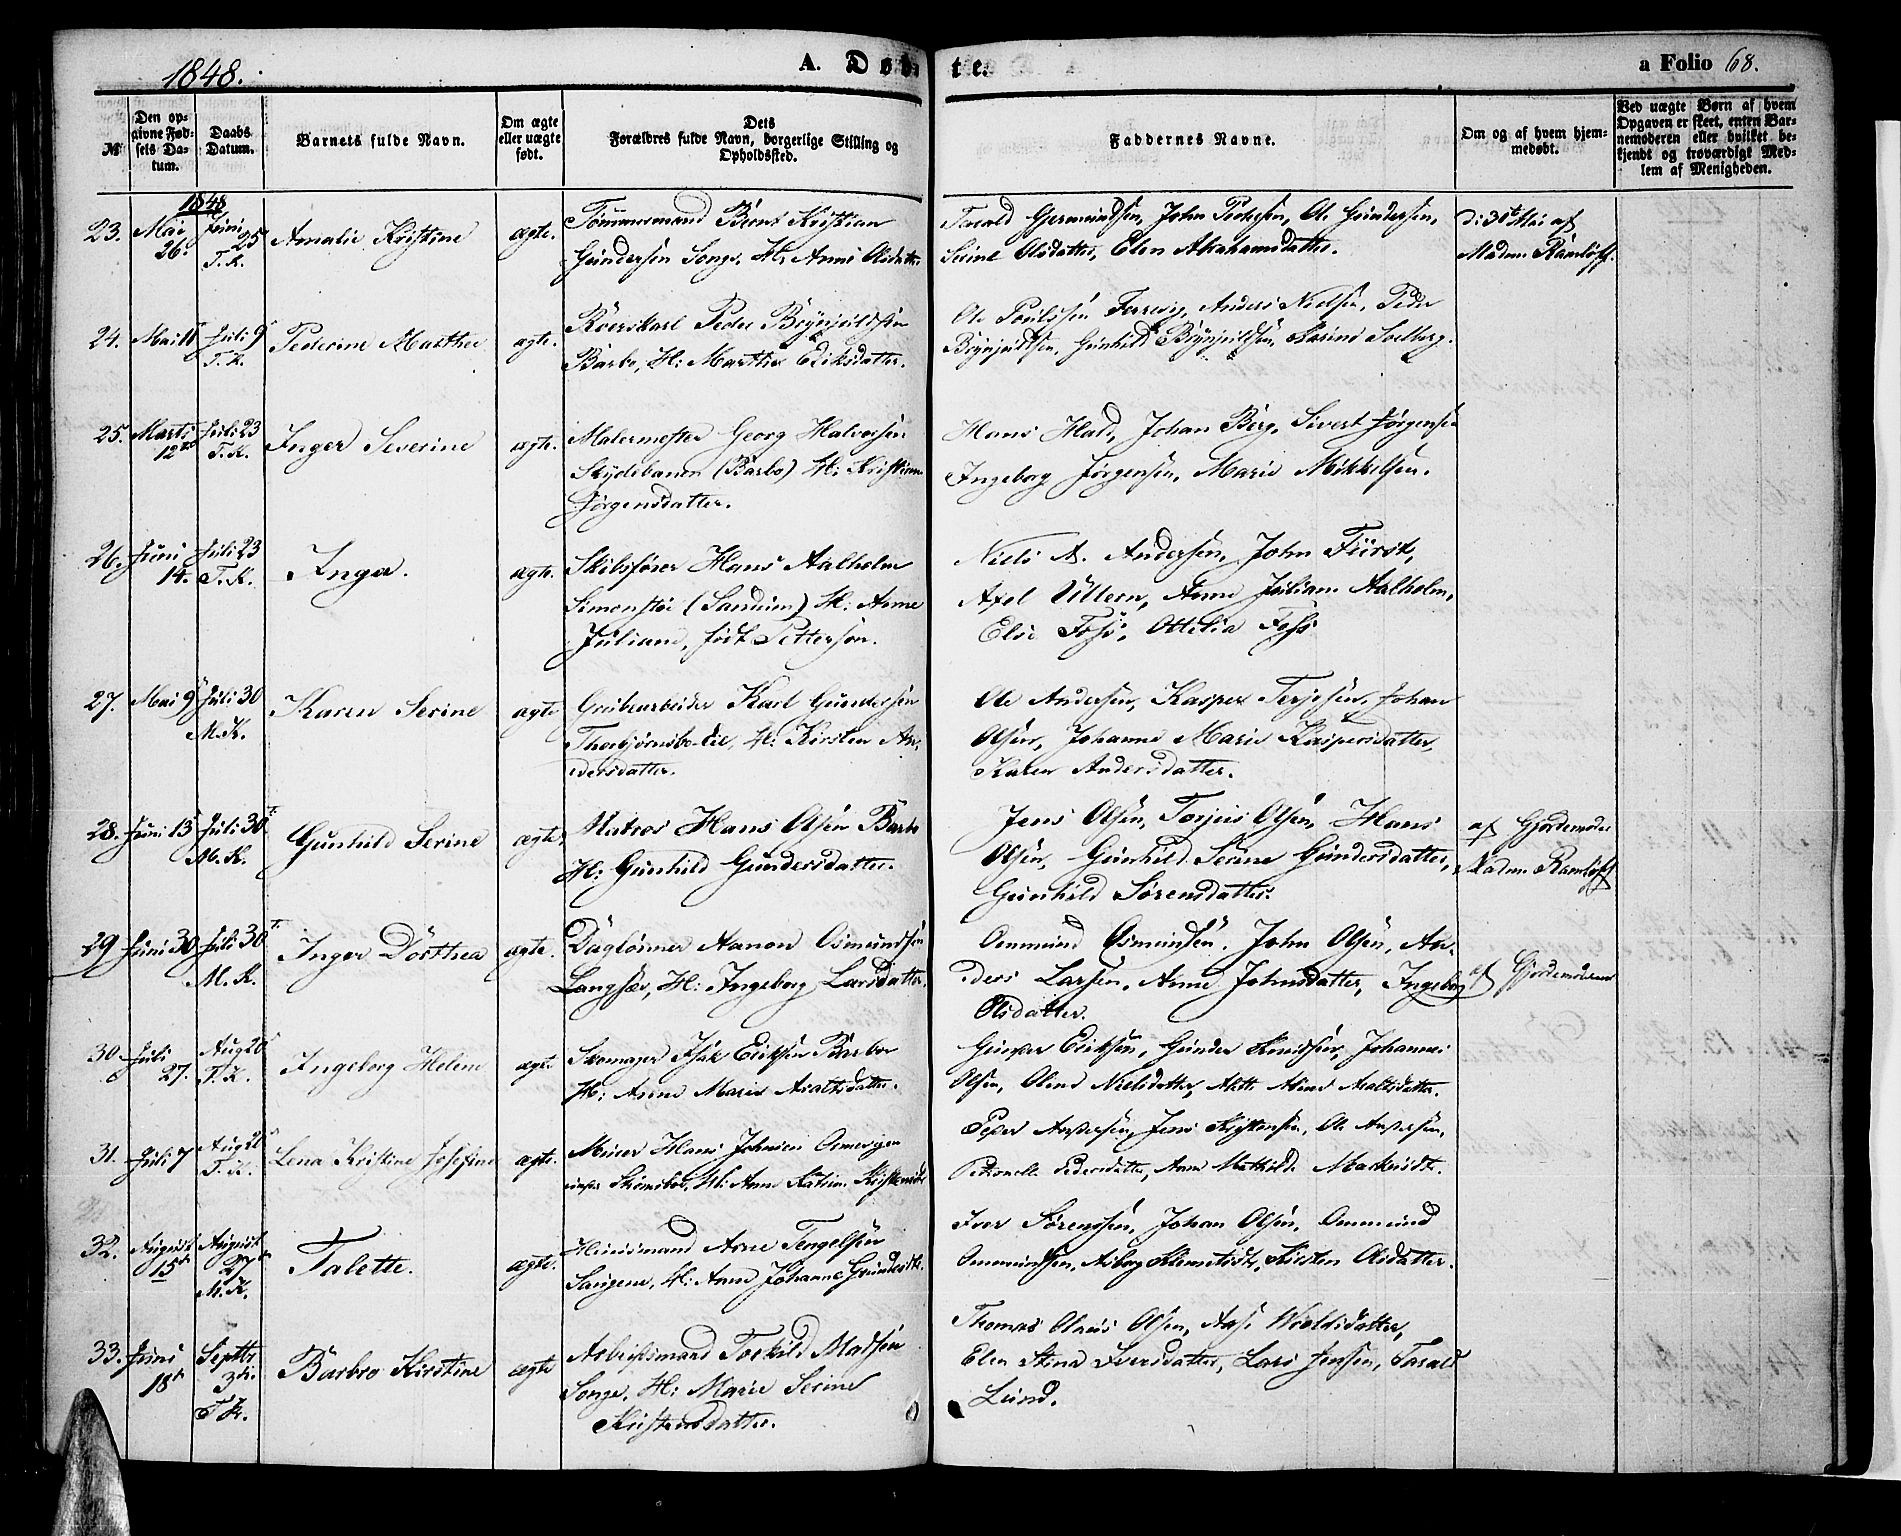 1848. A. Døbte. a Folio 68.
№
Den op-
givne Fød-
sels Da-
tum.
Daabs
Datum.
Barnets fulde Navn.
Om ægte
eller uægte
født.
Dets
Forældres fulde Navn, borgerlige Stilling og
Opholdssted.
Faddernes Navne.
Om og af hvem hjem-
medøbt.
Ved uægte Børn af hvem
Opgaven er skeet, enten Bar-
nemoderen eller hvilket be-
kjendt og troværdigt Med-
lem af Menigheden.
1848
23. Mai 26. Juni 25 T.K. Amalie Kristine ægte. Tømmermand Bernt Kristian
Gundersen Songe, H: Anne Olsdatter
Tarald Gjermundsen, John Pedersen, Ole Gundersen,
Serine Olsdatter, Elen Abrahamsdatter.
d: 31te Mai af
Madm Ramløff.
24. Mai 11 Juli 9 T.K. Pederine Marthe ægte. Peder Brynjulfsen
Barbo, H: Marthe Eriksdatter.
Ole Poulssen Anders Nielsen, Peder
Brynjulfsen, Gunhild Brynjulfsen, Karine Solberg.
25. Marts 12te Juli 23 T.K. Inger Severine ægte. Malermester Georg Halvorsen
Skydebanen (Barbo) H: Kristine
Jørgensdatter.
Hans Hald, Johan Berg, Sivert Jørgensen
Ingeborg Jørgensen, Marie Mikkelsen.
26. Juni 14. Juli 23 T.K. Inga. ægte. Skibsfører Hans Aalholm
Simonstø (Sandum) H: Anne
Juliane, født Pettersen.
Niels A. Andersen, John Fürst,
Axel Ullern, Anne Juliane Aalholm,
Else Foss, Ottilia Foss
27. Mai 9 Juli 30 M.K. Karen Serine ægte Grubearbeider Karl Gundersen
Thorbjørnsbo H: Kirsten An-
dersdatter.
Ole Andersen, Kasper Terjesen, Johan
Olsen, Johanne Marie Kaspersdatter,
Karen Andersdatter.
28. Juni 13 Juli 30 M.K. Gunhild Serine ægte Matros Hans Olsen Barbo
H: Gunhild Gundersdatter.
Jens Olsen, Torjus Olsen, Hans
Olsen, Gunhild Serine Gundersdatter,
Gunhild Sørensdatter.
af Gjordemoder
Madm Ramløff
29 Juni 30 Juli 30 M.K. Inger Dorthea ægte. Daglønner Aanon Osmundsen
Langsæ, H: Ingeborg Larsdatter.
Ommund Osmundsen, John Olsen, An-
ders Larsen, Anne Johnsdatter, Ingeborg
Olsdatter.
af Gjordemoderen
30 Juli 27. Aug 20 T.K. Ingeborg Helene ægte Skomager Isak Eriksen Barbo
H: Anne Marie
Eriksen, Gunder Johannes
Olsen, Oline Nielsdatter,
31. Juli 7 Aug 20 T.K. Lena Kristine Josefine ægte. Murer Hans Johnsen
H: Anne Katrine
Peder Andersen, Jens Kristensen, Ole Andersen,
Petronelle Pedersdatter, Anne Mathilde
32. August 15de August 27de M.K. Talette. ægte. Huusmand Arne Tengelsen
H: Anne Johanne Gundersdt.
Iver Sørensen, Johan Olsen, Ommund
Ommundsen, Asborg Klemetsdt, Kirsten Olsdatter.
33. Juni 18de Septbr 3die T.K. Barbro Kirstine ægte Arbeidsmand Torkild Madsen
Songe, H: Marie Serine
Kristensdatter.
Thomas Olsen, Aase
Elen Stina Iversdatter, Lars Jensen, Tarald
Lund.